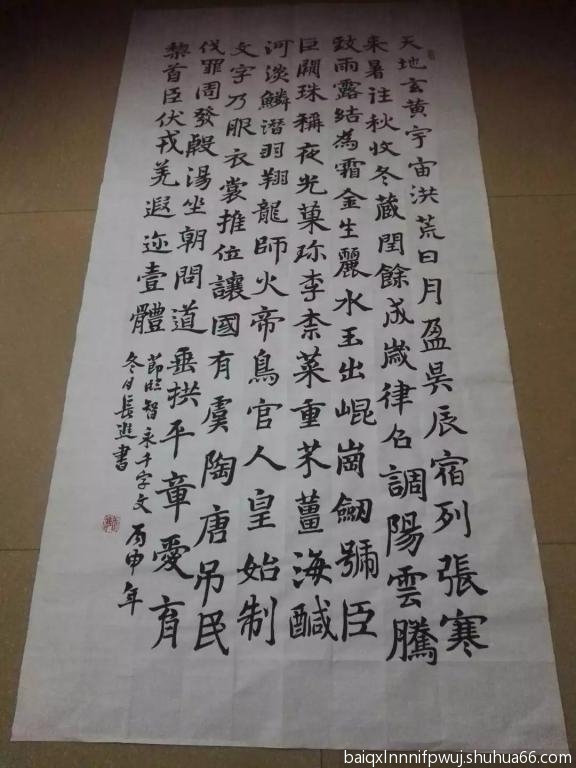 天地玄黄宇宙洪荒日月盈昃辰宿列張寒
来暑往秋收冬蔵閏餘成嵗律吕調陽雲騰
致雨露結為霜金生麗水玉出崐崗劒號臣
巨闕珠稱夜光菓珎李柰菜重芥薑海醎
河淡鱗潜羽翔龍師火帝鳥官人皇始制
文字乃服衣裳推位讓國有虞陶唐吊民
伐罪周發殷湯坐朝問道垂拱平章愛育
黎首臣伏戎羌遐迩壹體
節臨智永千字文丙申年
冬月長進書
baiqxlnnnifpwuj.shuhua66.com